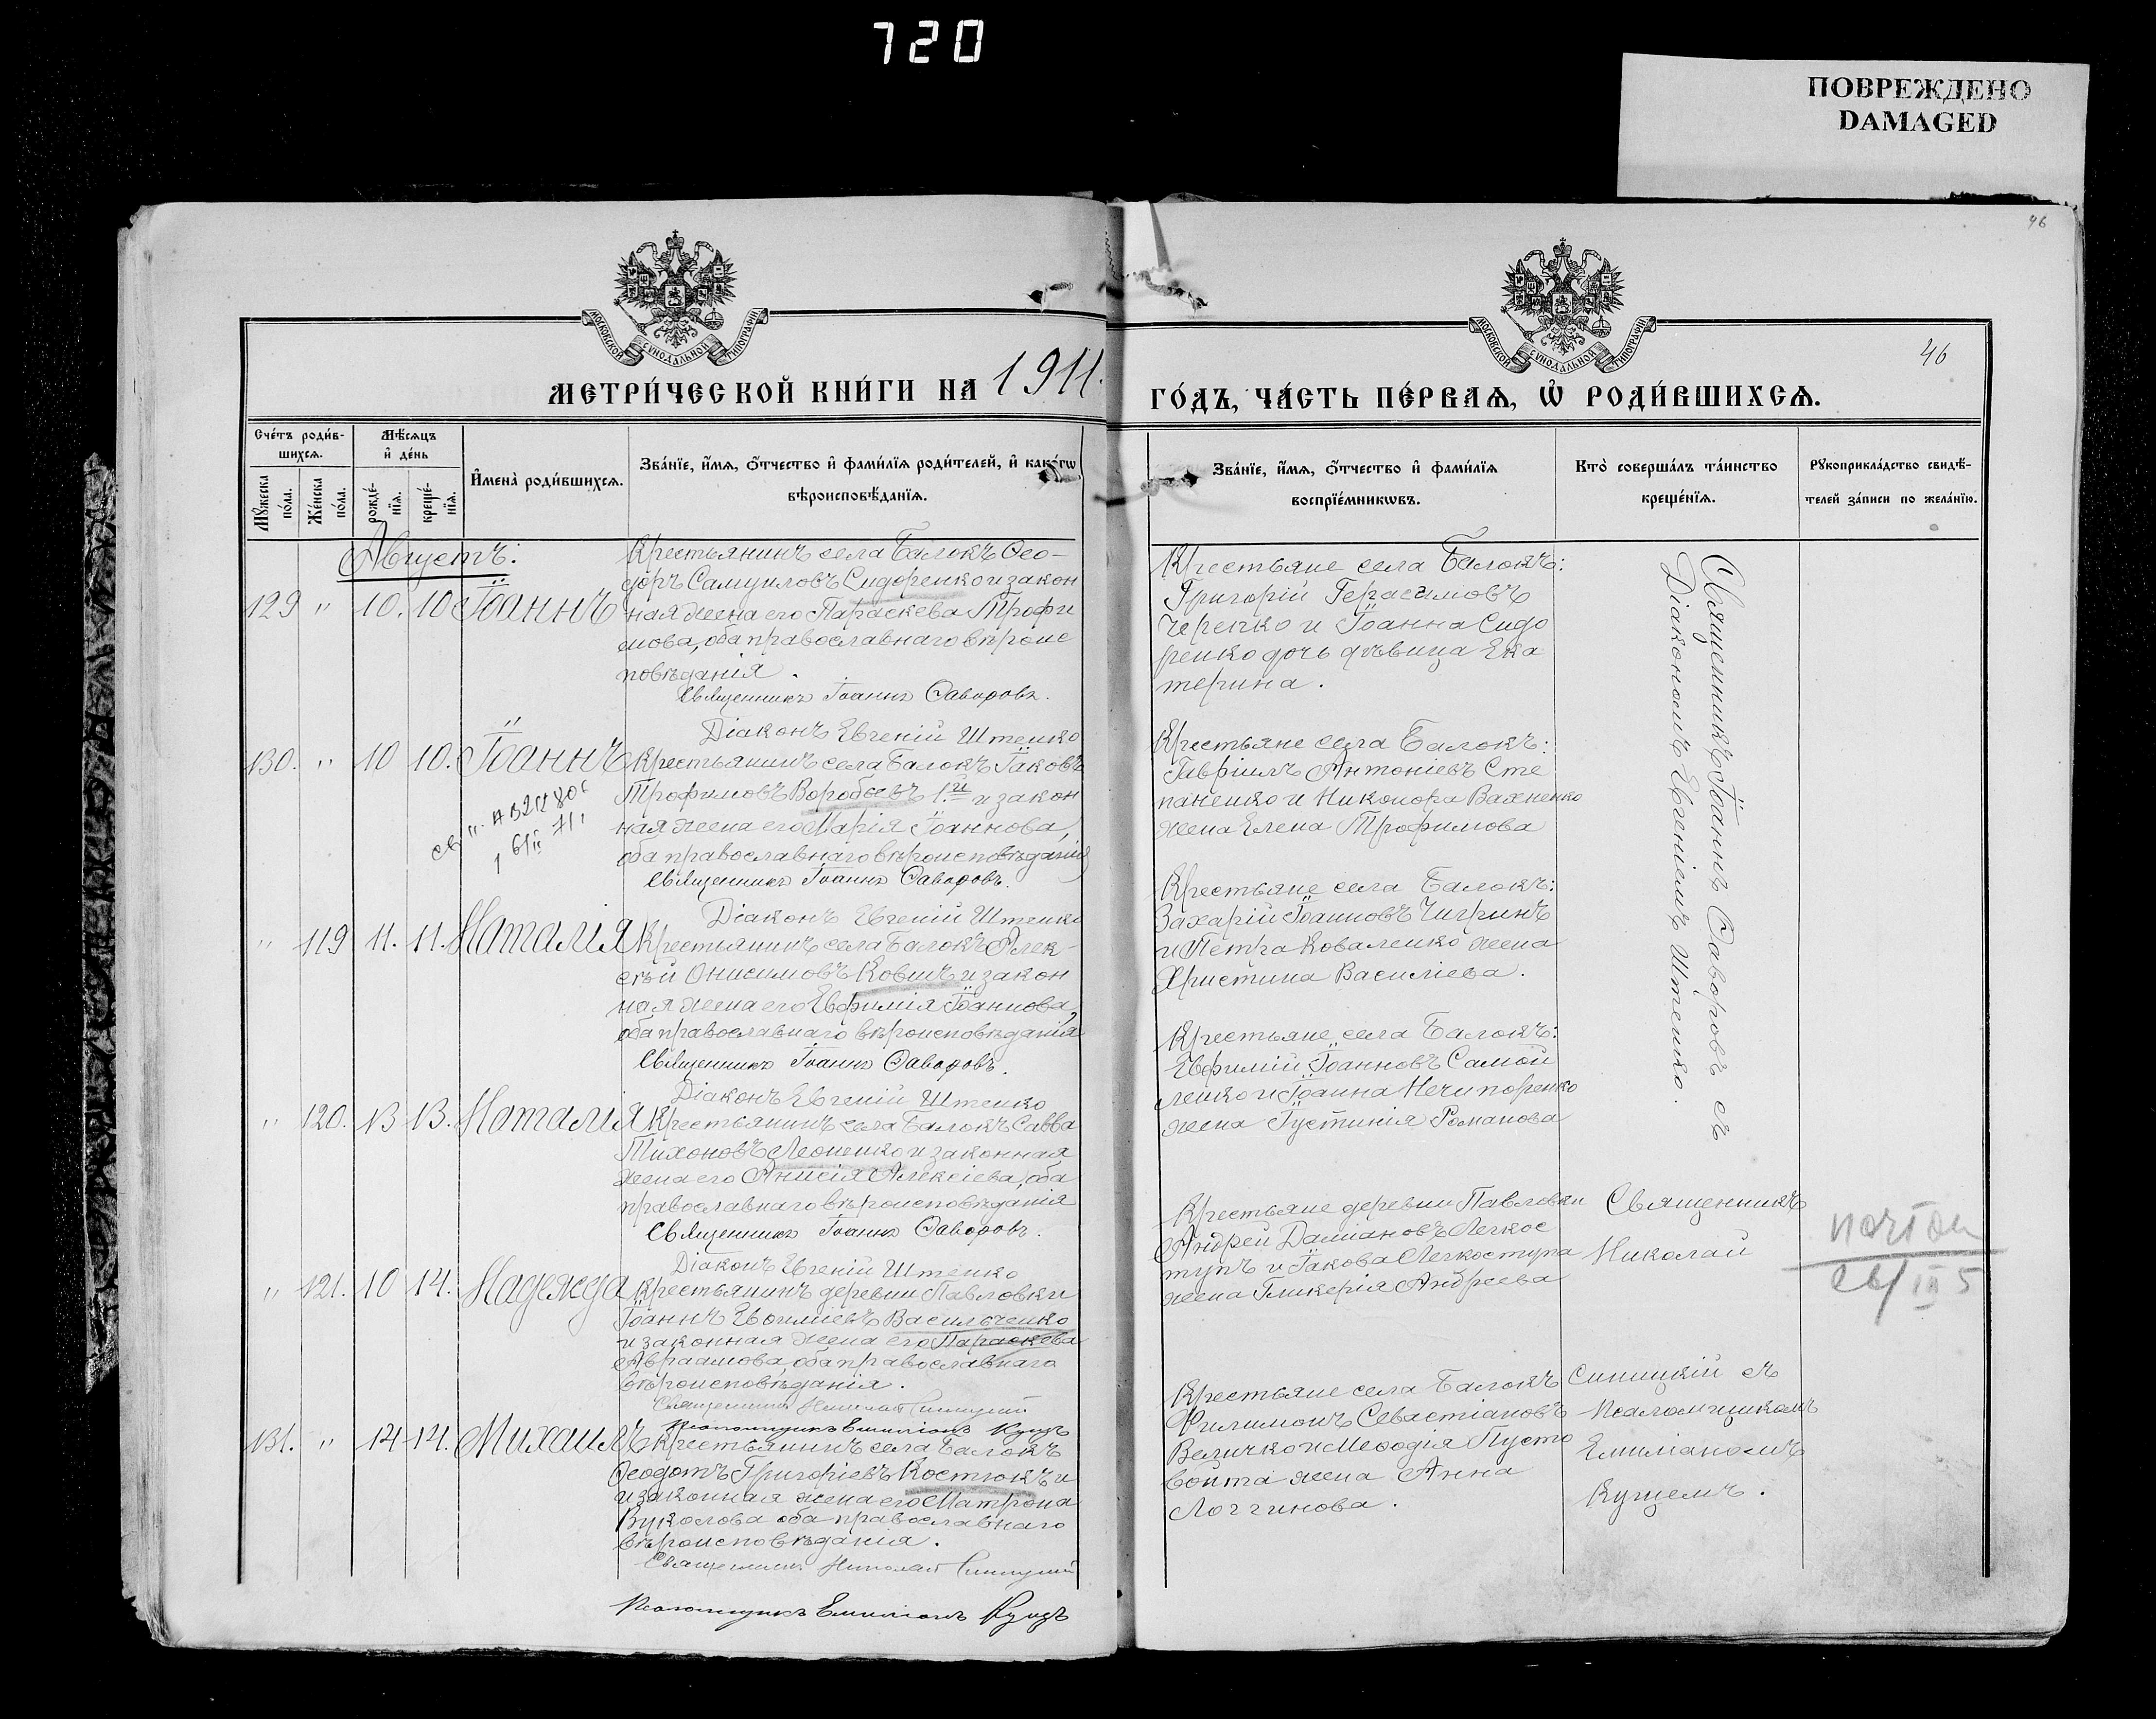 720
ПОВРЕЖДЕНО
DAMAGED
46
МОСКОВСКОЙ СѴНОДАЛЬНОЙ ТИПОГРАФІИ
МОСКОВСКОЙ СѴНОДАЛЬНОЙ ТИПОГРАФІИ
46
МЕТРИ́ЧЕСКОЙ КНИ́ГИ НА 1911.
ГО́ДЪ, ЧА́СТЬ ПЕ́РВАѦ, Ѡ҆ РОДИ́ВШИХСѦ.
Сче́тъ роди́в-
шихсѧ.
Мꙋжеска по́ла.
Же́нска по́ла.
Мѣ́сѧцъ
и҆ де́нь
рожде́-
нїѧ.
креще́-
нїѧ.
И҆мена̀ роди́вшихсѧ.
Зва́нїе, и҆́мѧ, ѻ҆́тчество и҆ фами́лїѧ роди́телей, и҆ како́гѡ
вѣроисповѣ́данїѧ.
Зва́нїе, и҆́мѧ, ѻ҆́тчество и҆ фами́лїѧ
воспрїе́мникѡвъ.
Кто̀ соверша́лъ та́инство
креще́нїѧ.
Рꙋкоприкла́дство свидѣ́-
телей за́писи по жела́нїю.
Августъ:
129 " 10. 10 Іоаннъ
Крестьянинъ села Балокъ Ѳео-
доръ Самуиловъ Сидоренко и закон
ная жена его Параскева Трофи
мова, оба православнаго вѣроис
повѣданія.
Священникъ Іоаннъ Ѳаворовъ.
Діаконъ Евгеній Штепко
Крестьяне села Балокъ:
Григорій Герасимовъ
Черепко и Іоанна Сидо
ренко дочь дѣвица Ека
терина.
130. " 10 10. Іоаннъ
Крестьянинъ села Балокъ Іаковъ
Трофимовъ Воробьевъ 1.й и закон
ная жена его Марія Іоаннова,
оба православнаго вѣроисповѣданія
Священникъ Іоаннъ Ѳаворовъ.
Діаконъ Евгеній Штепко
Крестьяне села Балокъ:
Гавріилъ Антоніевъ Сте
паненко и Никонора Вахненко
жена Елена Трофимова
" 119 11. 11. Наталія
Крестьянинъ села Балокъ Алек-
сѣй Онисимовъ Ковшъ и закон
ная жена его Евфимія Іоаннова,
оба православнаго вѣроисповѣданія
Священникъ Іоаннъ Ѳаворовъ.
Діаконъ Евгеній Штепко
Крестьяне села Балокъ:
Захарій Іоанновъ Чигринъ
и Петра Коваленко жена
Христина Василіева.
" 120. 13 13. Наталія
Крестьянинъ села Балокъ Савва
Тихоновъ Леоненко и законная
жена его Анисія Алексіева, оба
православнаго вѣроисповѣданія
Священникъ Іоаннъ Ѳаворовъ.
Діаконъ Евгеній Штепко
Крестьяне села Балокъ:
Евфимій Іоанновъ Самой
ленко и Іоанна Нечипоренко
жена Іустинія Романова
Священникъ Іоаннъ Ѳаворовъ съ
Діакономъ Евгеніемъ Штепко.
" 121. 10 14. Надежда
Крестьянинъ деревни Павловки
Іоаннъ Евфиміевъ Васильченко
и законная жена его Параскева
Авраамова, оба православнаго
вѣроисповѣданія.
Священникъ Николай Синицкій
Псаломщикъ Емиліанъ Кущъ
Крестьяне деревни Павловки
Андрей Даміановъ Легкос
тупъ и Іакова Легкоступа
жена Гликерія Андреева
Священникъ
Николай
131. " 14 14. Михаилъ
Крестьянинъ села Балокъ
Ѳеодотъ Григоріевъ Костюкъ и
и законная жена его Матрона
Вуколова оба православнаго
вѣроисповѣданія.
Священникъ Николай Синицкій
Псаломщикъ Емиліанъ Кущъ
Крестьяне села Балокъ
Филимонъ Севастіановъ
Величко и Меѳодія Пусто
войта жена Анна
Логгинова.
Синицкій съ
Псаломщикомъ
Емиліаномъ
Кущемъ.